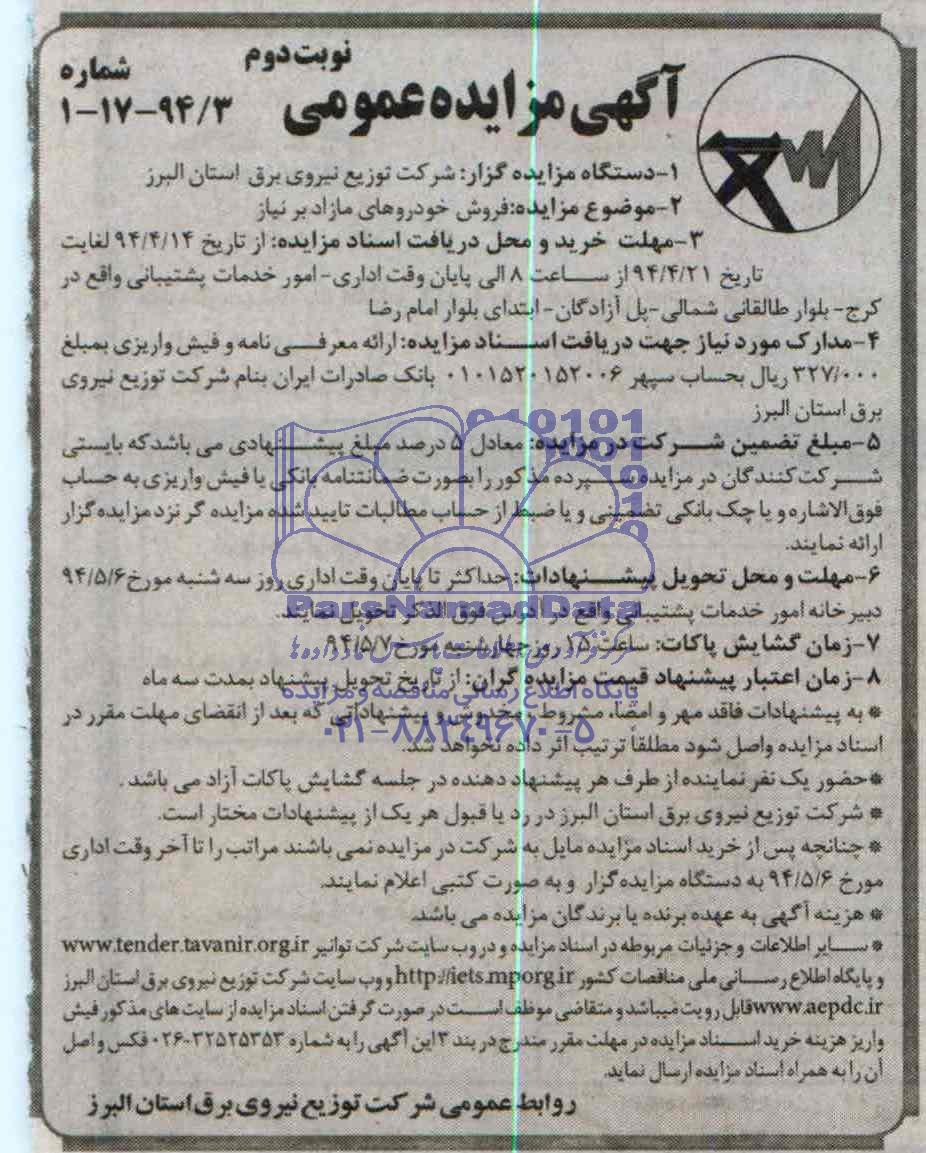 نوبت دوم
آگهی مزایده عمومی
شماره
۱-۱۷-۹۴/۳
۱-دستگاه مزایده گزار: شرکت توزیع نیروی برق استان البرز
۲-موضوع مزایده:فروش خودروهای مازاد بر نیاز
۳-مهلت خرید و محل دریافت اسناد مزایده: از تاریخ ۹۴/۴/۱۴ لغایت
تاریخ ۹۴/۴/۲۱ از ساعت ۸ الی پایان وقت اداری- امور خدمات پشتیبانی واقع در
کرج- بلوار طالقانی شمالی-پل آزادگان- ابتدای بلوار امام رضا
۴-مدارک مورد نیاز جهت دریافت اسناد مزایده: ارائه معرفی نامه و فیش واریزی بمبلغ
۳۲۷/۰۰۰ ریال بحساب سپهر ۰۱۰۱۵۲۰۱۵۲۰۰۶ بانک صادرات ایران بنام شرکت توزیع نیروی
برق استان البرز
۵-مبلغ تضمین شرکت در مزایده: معادل ۵ درصد مبلغ پیشنهادی می باشد که بایستی
شرکت کنندگان در مزایده سپرده مذکور را بصورت ضمانتنامه بانکی یا فیش واریزی به حساب
فوق الاشاره و یا چک بانکی تضمینی و یا ضبط از حساب مطالبات تایید شده مزایده گر نزد مزایده گزار
ارائه نمایند.
۶-مهلت و محل تحویل پیشنهادات: حداکثر تا پایان وقت اداری روز سه شنبه مورخ ۹۴/۵/۶
دبیرخانه امور خدمات پشتیبانی واقع در آدرس فوق الذکر تحویل نمایند.
۷-زمان گشایش پاکات: ساعت ۱۵ روز چهارشنبه مورخ ۹۴/۵/۷
۸-زمان اعتبار پیشنهاد قیمت مزایده گران: از تاریخ تحویل پیشنهاد بمدت سه ماه
* به پیشنهادات فاقد مهر و امضا، مشروط و مخدوش و پیشنهاداتی که بعد از انقضای مهلت مقرر در
اسناد مزایده واصل شود مطلقاً ترتیب اثر داده نخواهد شد.
*حضور یک نفر نماینده از طرف هر پیشنهاد دهنده در جلسه گشایش پاکات آزاد می باشد .
* شرکت توزیع نیروی برق استان البرز در رد یا قبول هر یک از پیشنهادات مختار است.
* چنانچه پس از خرید اسناد مزایده مایل به شرکت در مزایده نمی باشند مراتب را تا آخر وقت اداری
مورخ ۹۴/۵/۶ به دستگاه مزایده گزار و به صورت کتبی اعلام نمایند.
* هزینه آگهی به عهده برنده یا برندگان مزایده می باشد.
* سایر اطلاعات و جزئیات مربوطه در اسناد مزایده و در وب سایت شرکت توانیر www.tender.tavanir.org.ir
و پایگاه اطلاع رسانی ملی مناقصات کشور http://iets.mporg.ir و وب سایت شرکت توزیع نیروی برق استان البرز
www.aepdc.ir قابل رویت میباشد و متقاضی موظف است در صورت گرفتن اسناد مزایده از سایت های مذکور فیش
واریز هزینه خرید اسناد مزایده در مهلت مقرر مندرج در بند ۳ این آگهی را به شماره ۳۲۵۲۵۳۵۳-۰۲۶ فکس و اصل
آن را به همراه اسناد مزایده ارسال نماید.
روابط عمومی شرکت توزیع نیروی برق استان البرز
ParsNamadData
پایگاه اطلاع رسانی مناقصه و مزایده
۰۲۱-۸۸۳۴۹۶۷۰-۵